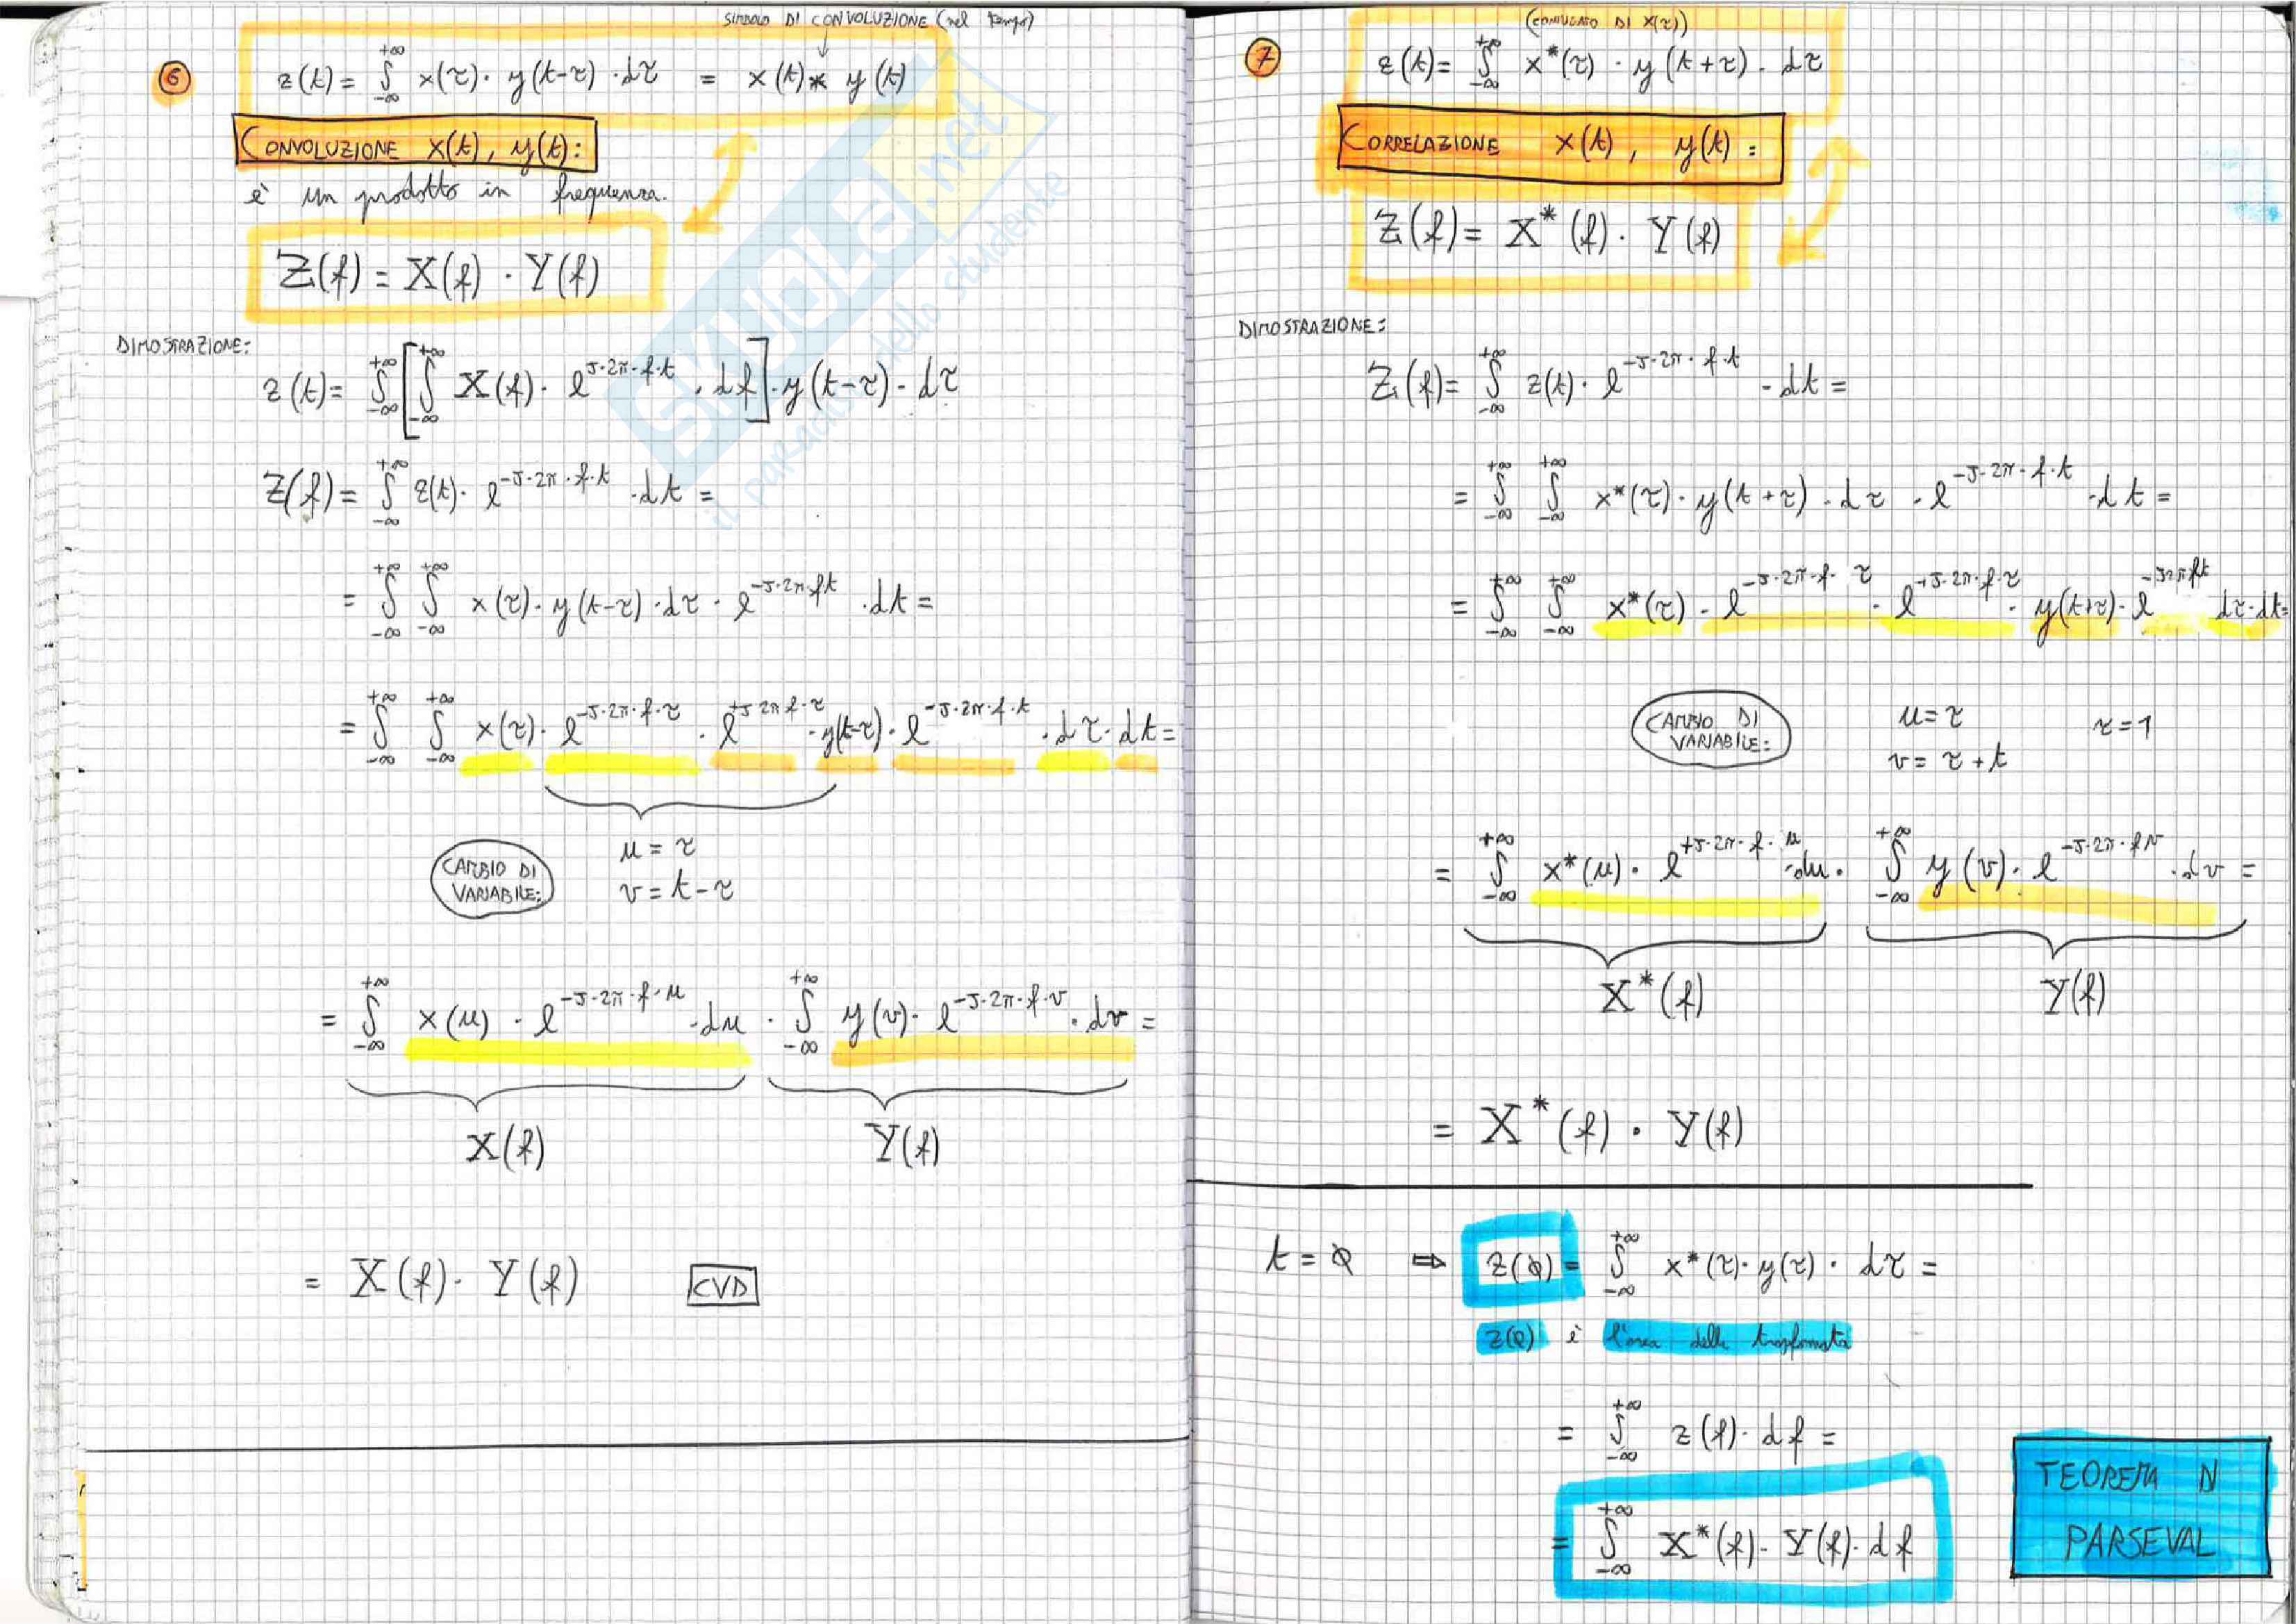 SIMBOLO DI CONVOLUZIONE (nel tempo)
6
z(t) = ∫_{-∞}^{+∞} x(τ) · y(t-τ) · dτ = x(t) * y(t)
CONVOLUZIONE x(t), y(t):
è un prodotto in frequenza.
Z(f) = X(f) · Y(f)
DIMOSTRAZIONE:
z(t) = ∫_{-∞}^{+∞} [ ∫_{-∞}^{+∞} X(f) · e^{J·2π·f·t} · df ] · y(t-τ) · dτ
Z(f) = ∫_{-∞}^{+∞} z(t) · e^{-J·2π·f·t} · dt =
= ∫_{-∞}^{+∞} ∫_{-∞}^{+∞} x(τ) · y(t-τ) · dτ · e^{-J·2π·ft} · dt =
= ∫_{-∞}^{+∞} ∫_{-∞}^{+∞} x(τ) · e^{-J·2π·f·τ} · e^{+J2πf·τ} · y(t-τ) · e^{-J·2π·f·t} · dτ · dt =
CAMBIO DI VARIABILE:
u = τ
v = t - τ
= ∫_{-∞}^{+∞} x(u) · e^{-J·2π·f·u} · du · ∫_{-∞}^{+∞} y(v) · e^{-J·2π·f·v} · dv =
X(f) Y(f)
= X(f) · Y(f) CVD
(CONIUGATO DI X(τ))
7
z(t) = ∫_{-∞}^{+∞} x*(τ) · y(t+τ) · dτ
CORRELAZIONE x(t), y(t):
Z(f) = X*(f) · Y(f)
DIMOSTRAZIONE:
Z(f) = ∫_{-∞}^{+∞} z(t) · e^{-J·2π·f·t} · dt =
= ∫_{-∞}^{+∞} ∫_{-∞}^{+∞} x*(τ) · y(t+τ) · dτ · e^{-J·2π·f·t} · dt =
= ∫_{-∞}^{+∞} ∫_{-∞}^{+∞} x*(τ) · e^{-J·2π·f·τ} · e^{+J·2π·f·τ} · y(t+τ) · e^{-J2πft} dτ · dt =
CAMBIO DI VARIABILE:
u = τ
τ = 1
v = τ + t
= ∫_{-∞}^{+∞} x*(u) · e^{+J·2π·f·u} · du · ∫_{-∞}^{+∞} y(v) · e^{-J·2π·fv} · dv =
X*(f) Y(f)
= X*(f) · Y(f)
t = 0 ⇒ Z(0) = ∫_{-∞}^{+∞} x*(τ) · y(τ) · dτ =
Z(0) è l'area della trasformata
= ∫_{-∞}^{+∞} z(f) · df =
= ∫_{-∞}^{+∞} X*(f) · Y(f) · df
TEOREMA DI
PARSEVAL
SKUOLA.net
il paradiso dello studente